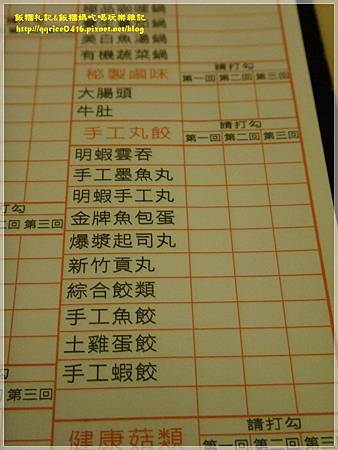 飯糰札記&飯糰媽吃喝玩樂雜記
http://qqrice0416.pixnet.net/blog
美白魚湯鍋
有機蔬菜鍋
請打勾
秘製鹵味 第一回 第二回 第三回
大腸頭
牛肚
請打勾
手工丸餃 第一回 第二回 第三回
明蝦雲吞
手工墨魚丸
明蝦手工丸
金牌魚包蛋
爆漿起司丸
新竹貢丸
綜合餃類
手工魚餃
土雞蛋餃
手工蝦餃
請打勾
健康菇類 第一回 第二回 第三回
勾
回 第三回
勾
第三回